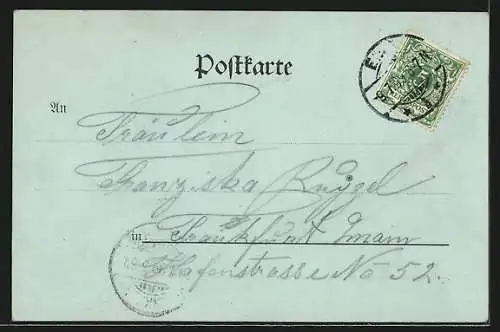 Postkarte
An
Fräulein
Franziska
in Frankfurt Main
Hafenstrasse No 52.